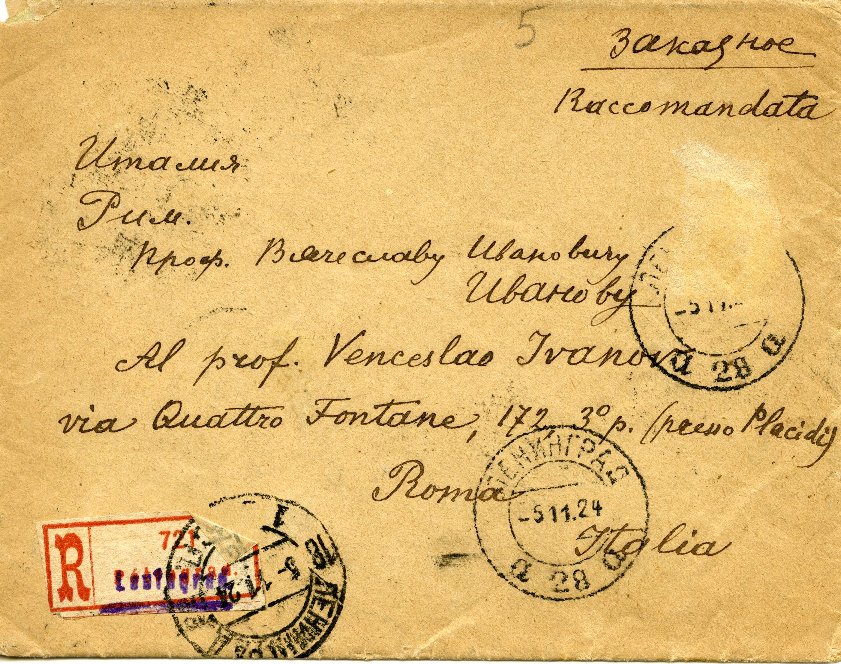 5
Заказное
Raccomandata
Италия
Рим.
Проф. Вячеславу Ивановичу
Иванову
Al prof. Venceslao Ivanov
via Quattro Fontane, 172, 3º p. (presso Placidi)
Roma
Italia
-5 11.
28
ЛЕНИНГРАД
-5 11.24
28
R
721
Leningrad
ЛЕНИНГРАД